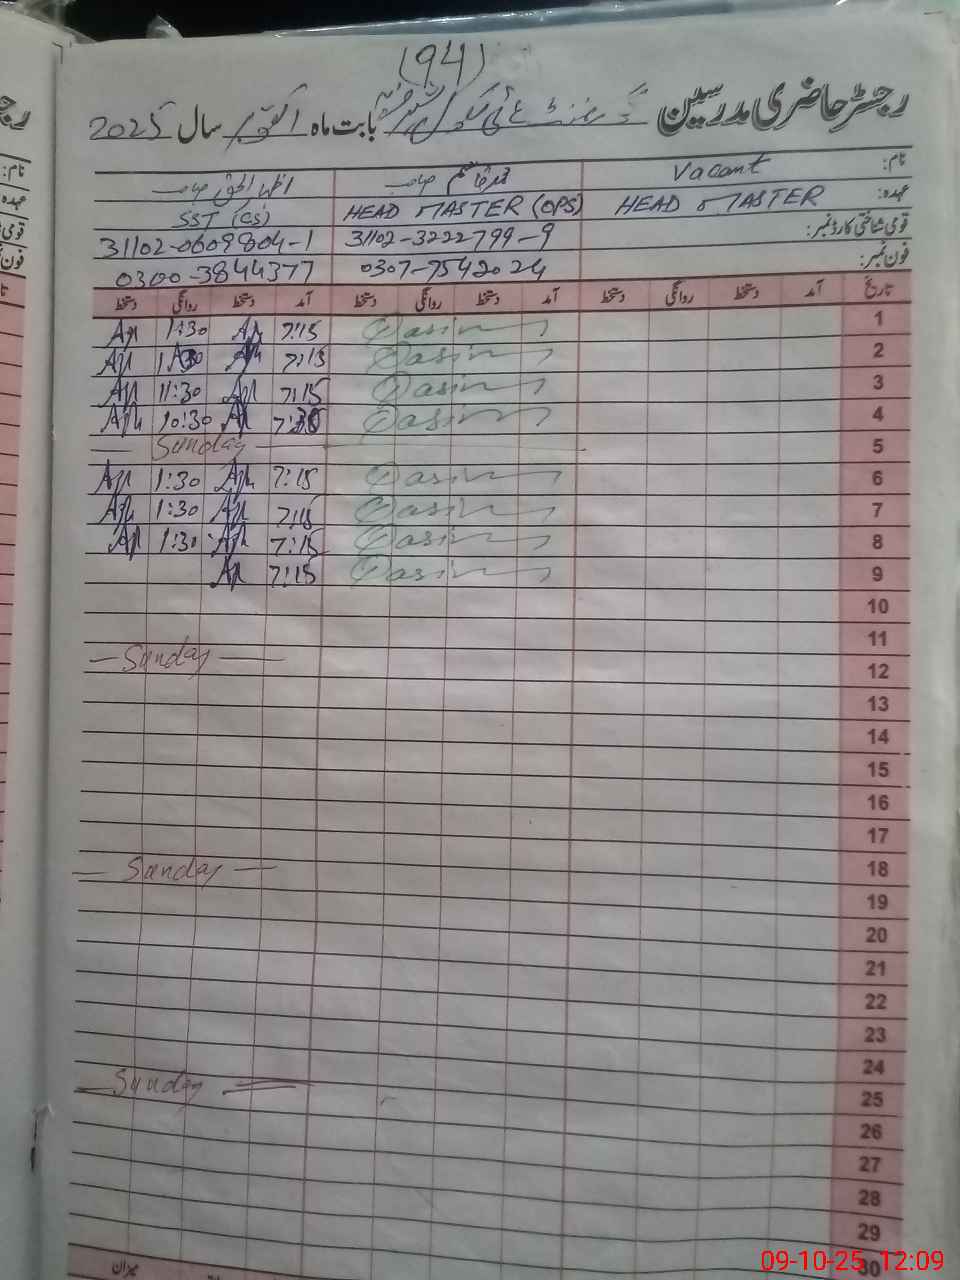 (94)
رجسٹر حاضری مدرسین گورنمنٹ ہائی سکول بابت ماہ اکتوبر سال 2025
نام: Vacant
عہدہ: HEAD MASTER HEAD MASTER (OPS) SST (CS)
قومی شناختی کارڈ نمبر: 31102-3222799-9 31102-0609804-1
فون نمبر: 0307-7542024 0300-3844377
تاریخ آمد دستخط روانگی دستخط آمد دستخط روانگی دستخط آمد دستخط روانگی دستخط
1 Qasim 7:15 1:30
2 Qasim 7:15
3 Qasim 7:15 11:30
4 Qasim 10:30
5 Sunday
6 Qasim 7:15 1:30
7 Qasim 7:15 1:30
8 Qasim 7:15 1:30
9 Qasim 7:15
10
11
12 Sunday
13
14
15
16
17
18 Sunday
19
20
21
22
23
24
25 Sunday
26
27
28
29
30
میزان
09-10-25 12:09